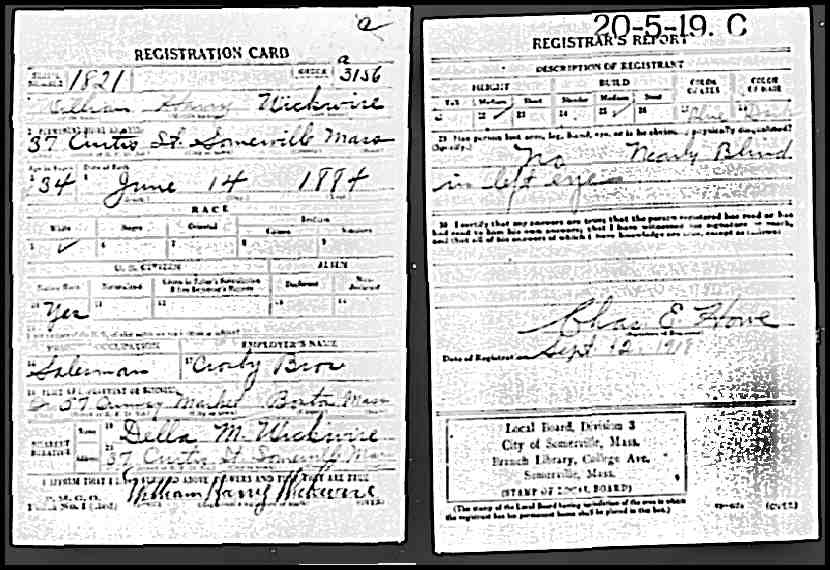 a
REGISTRATION CARD
SERIAL NUMBER 1821 ORDER NUMBER a 3156
William Harry Wickwire
2 PERMANENT HOME ADDRESS
37 Curtis St. Somerville Mass
Age in Years Date of Birth
34 June 14 1884
RACE
White Negro Oriental Indian
Citizen
5 ✓ 6 7 8 9
U. S. CITIZEN ALIEN
Native Born Naturalized Declarant Non-declarant
10 Yes 11 12 13 14
PRESENT OCCUPATION EMPLOYER'S NAME
16 Salesman 17 Crosby Bros
18 PLACE OF EMPLOYMENT OR BUSINESS
57 Market Boston Mass
NEAREST RELATIVE Name 19 Della M. Wickwire
Address 20 37 Curtis St. Somerville Mass
I AFFIRM THAT I HAVE VERIFIED ABOVE ANSWERS AND THAT THEY ARE TRUE
William Harry Wickwire
20-5-19. C
REGISTRAR'S REPORT
DESCRIPTION OF REGISTRANT
HEIGHT BUILD COLOR OF EYES COLOR OF HAIR
Tall Medium Short Slender Medium Stout
21 22 ✓ 23 24 25 ✓ 26 27 Blue
29 Has person lost arm, leg, hand, eye, or is he obviously physically disqualified?
(Specify.) No Nearly Blind
in left eye
30 I certify that my answers are true; that the person registered has read or has
had read to him his own answers; that I have witnessed his signature or mark,
and that all of his answers of which I have knowledge are true, except as follows:
Chas E Howe
Date of Registration Sept 12, 1918
Local Board, Division 3
City of Somerville, Mass.
Branch Library, College Ave.
Somerville, Mass.
(STAMP OF LOCAL BOARD)
(The stamp of the Local Board having jurisdiction of the area in which
the registrant has his permanent home shall be placed in this box.)
(OVER)